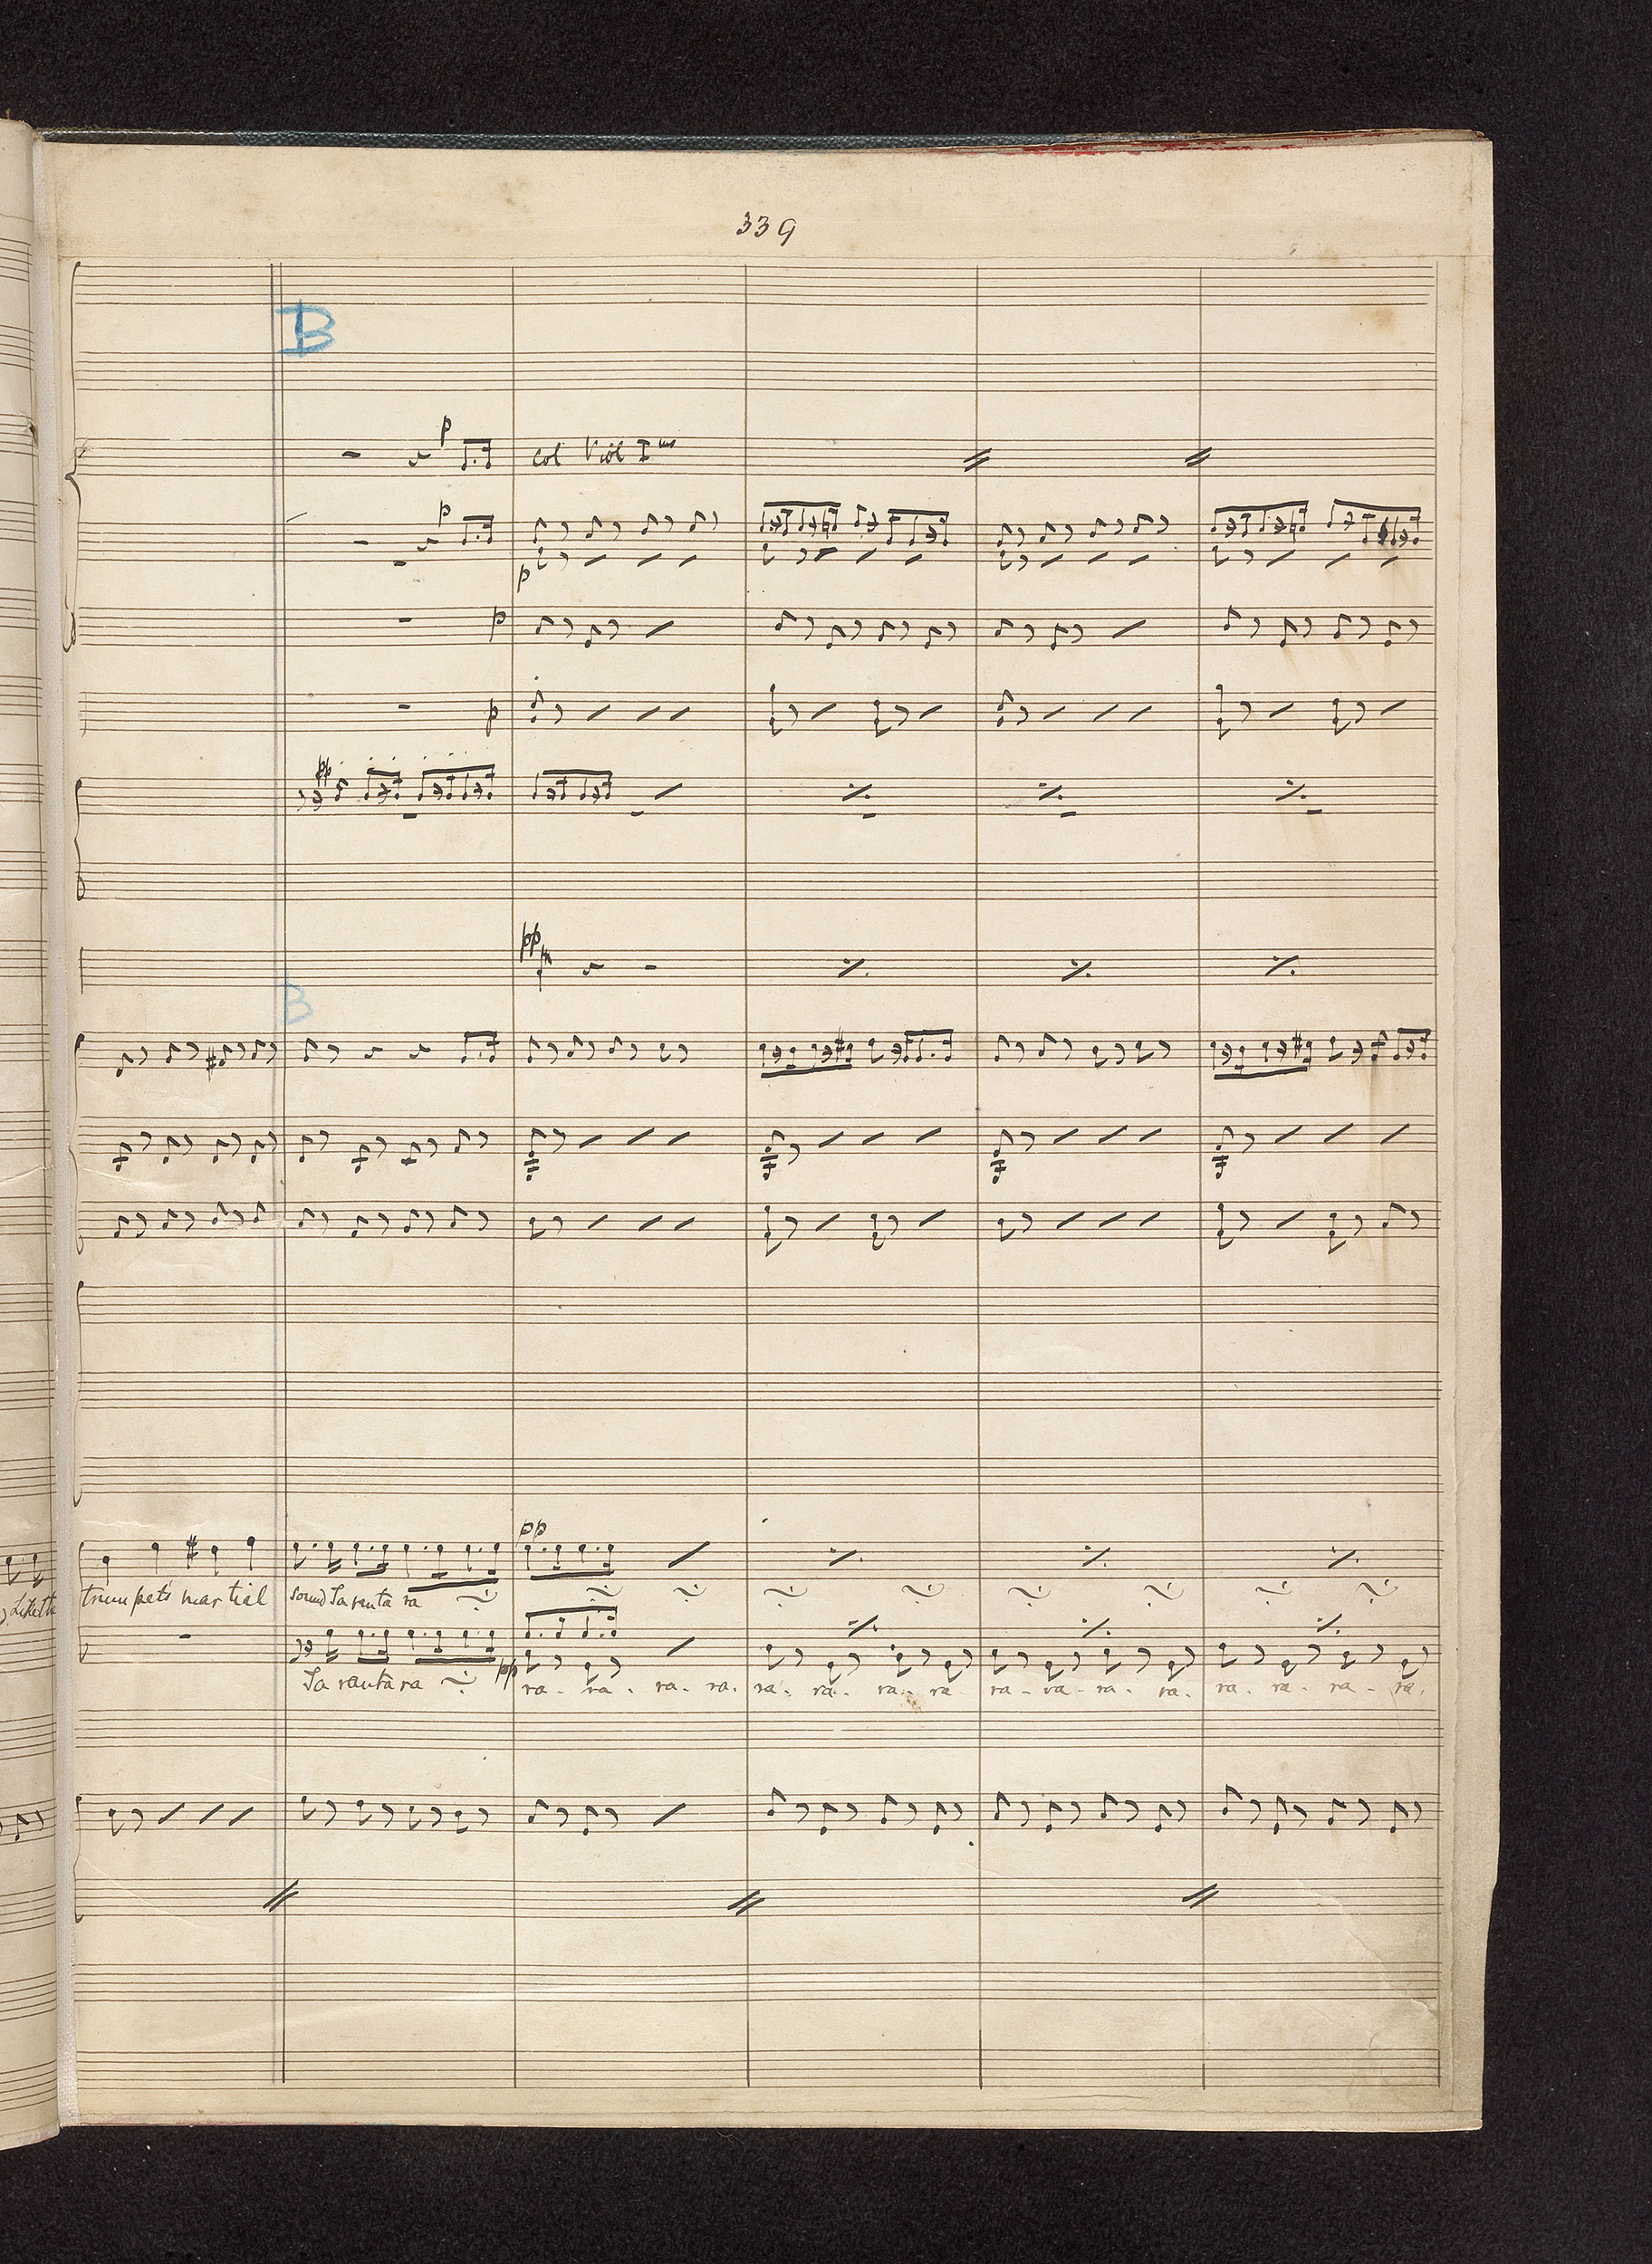 339
B
p
col Viol I mo
p
p
p
p
pp
pp
B
pp
trumpet's martial sound Taranta ra
Ta ranta ra pp ra - ra - ra - ra - ra - ra - ra - ra ra - ra - ra - ra - ra - ra - ra - ra.